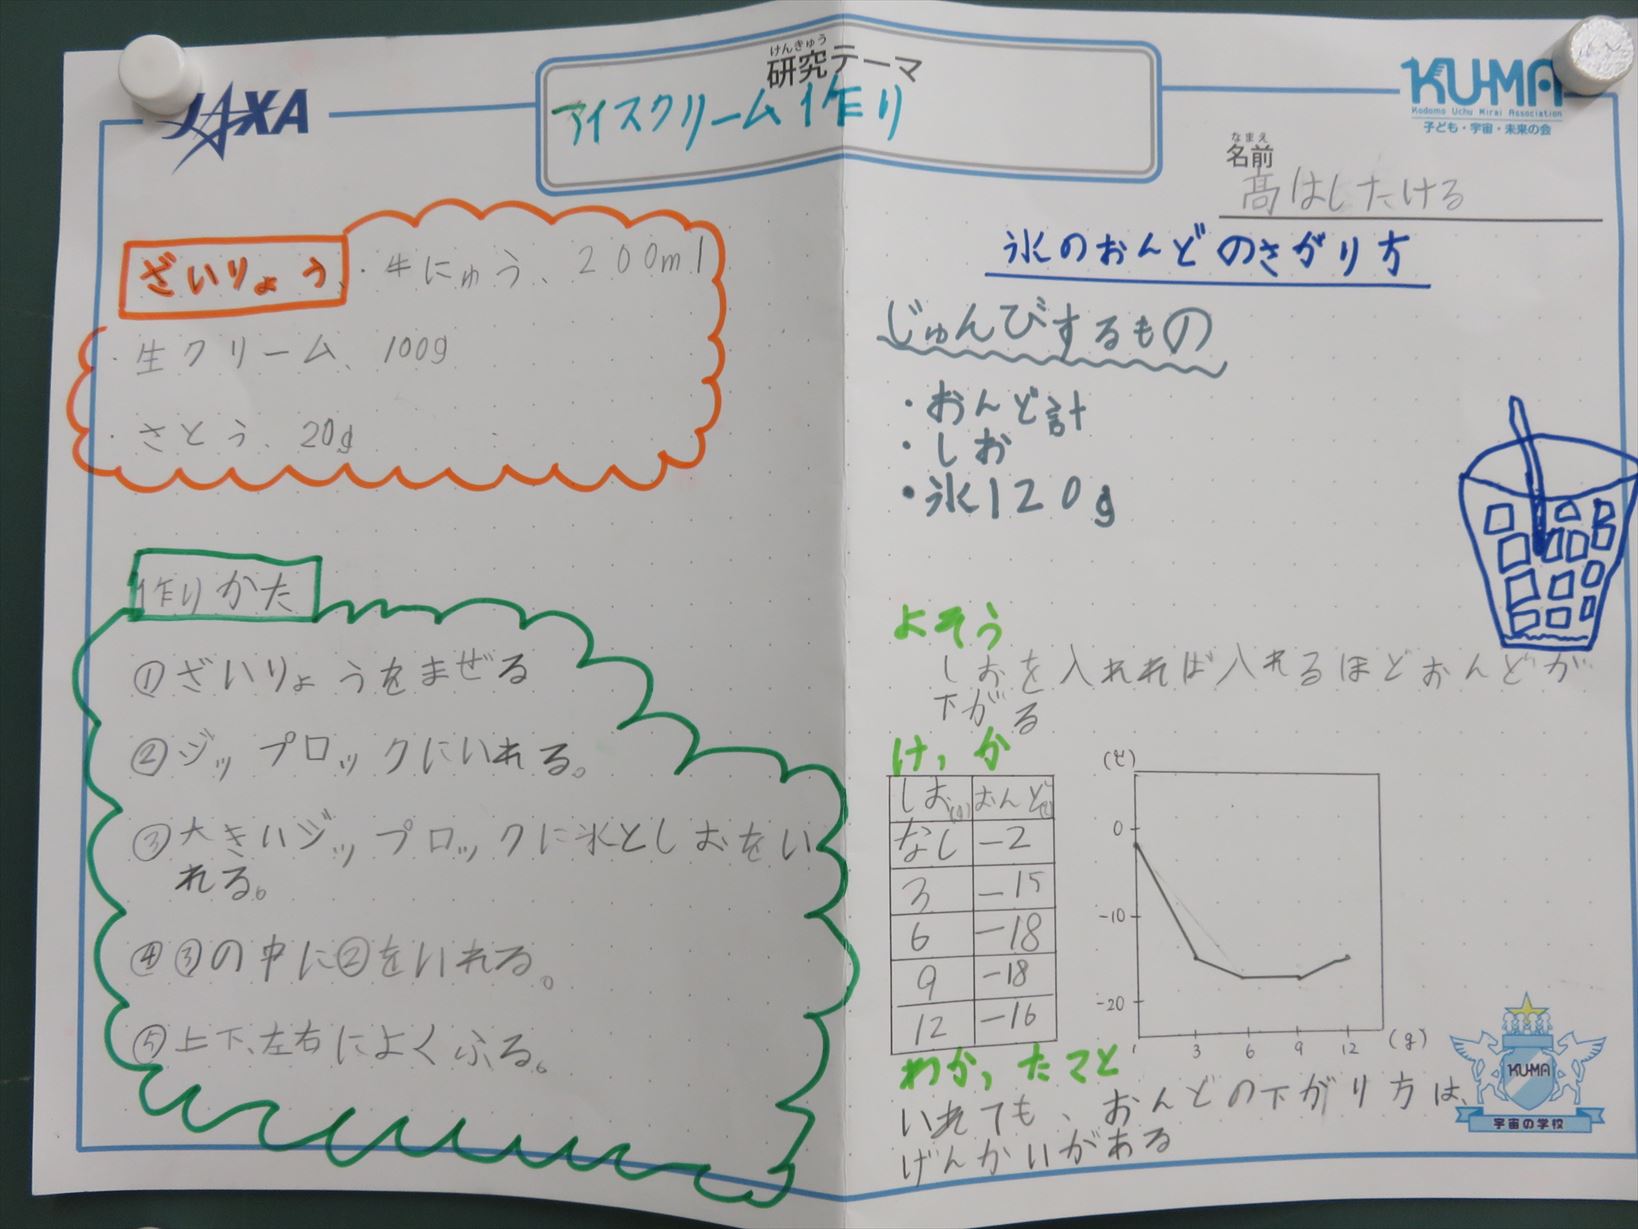 JAXA
けんきゅう
研究テーマ
アイスクリーム作り
KU-MA
Kodomo Uchu Mirai Association
子ども・宇宙・未来の会
なまえ
名前
髙はしたける
ざいりょう
・牛にゅう、200ml
・生クリーム、100g
・さとう、20g
作りかた
①ざいりょうをまぜる
②ジップロックにいれる。
③大きいジップロックに氷としおをい
れる。
④③の中に②をいれる。
⑤上下、左右によくふる。
氷のおんどのさがり方
じゅんびするもの
・おんど計
・しお
・氷120g
よそう
しおを入れれば入れるほどおんどが
下がる
けっか
しお(g) おんど(℃)
なし -2
3 -15
6 -18
9 -18
12 -16
(℃)
0
-10
-20
3 6 9 12 (g)
わかったこと
いれても、おんどの下がり方は、
げんかいがある
KU-MA
宇宙の学校